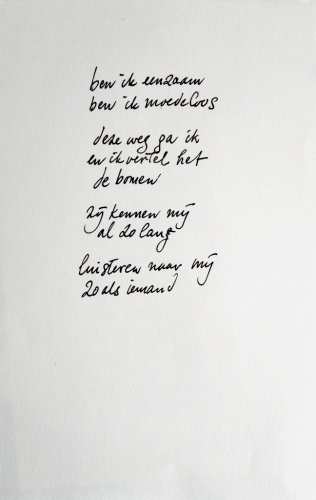 ben ik eenzaam
ben ik moedeloos
deze weg ga ik
en ik vertel het
de bomen
zij kennen mij
al zo lang
luisteren naar mij
zoals iemand